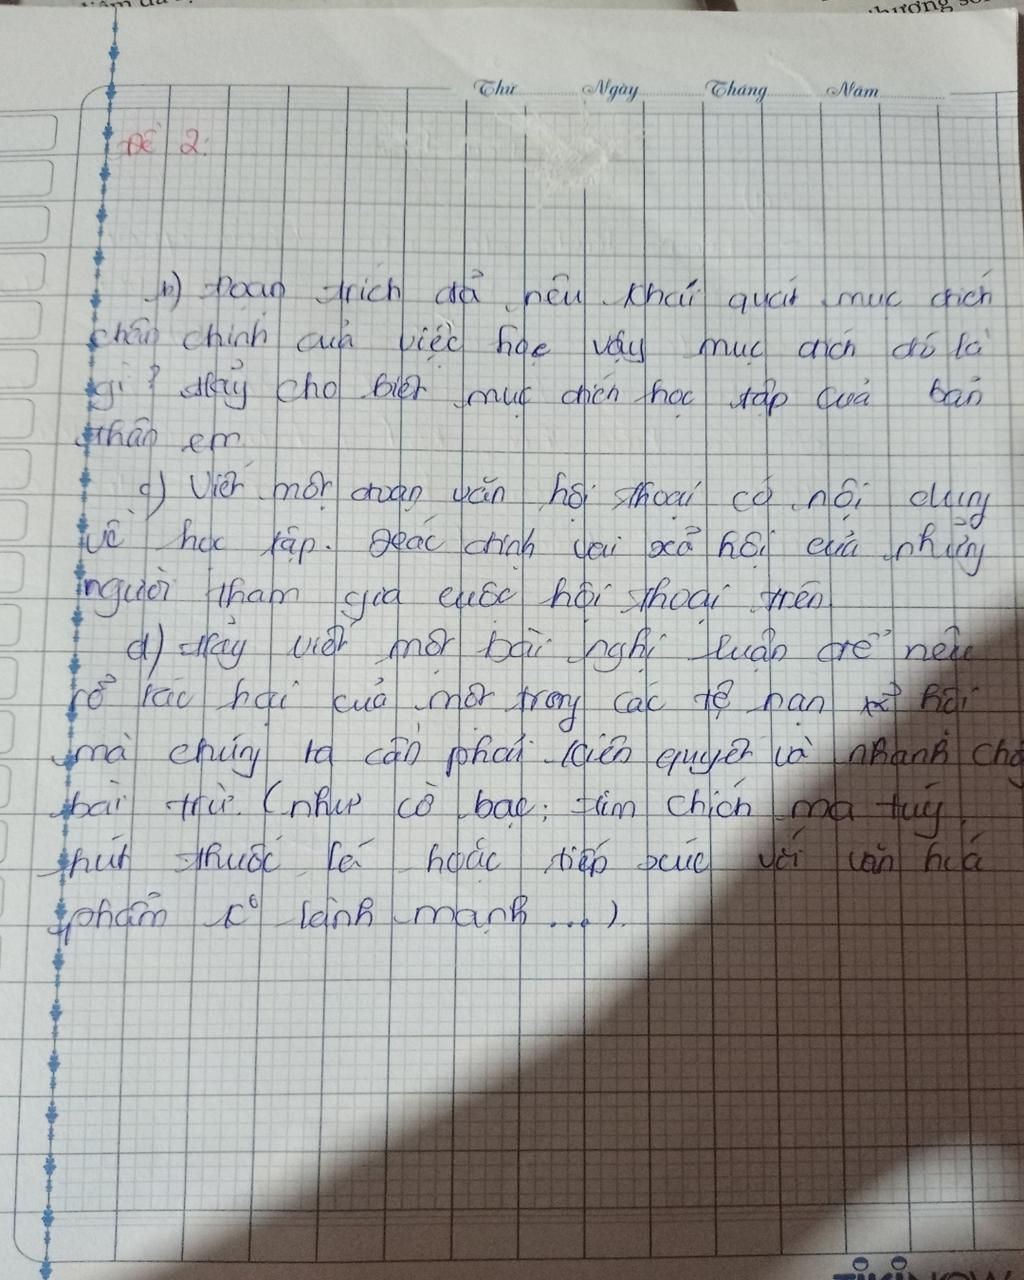 Thứ Ngày Tháng Năm
Đề 2:
b) Đoạn trích đã nêu khái quát mục đích
chân chính của việc học vậy mục đích đó là
gì? Hãy cho biết mục đích học tập của bản
thân em
c) Viết một đoạn văn hội thoại có nội dung
về học tập. Xác định vai xã hội của những
người tham gia cuộc hội thoại trên
d) Hãy viết một bài nghị luận để nêu
rõ tác hại của một trong các tệ nạn xã hội
mà chúng ta cần phải kiên quyết và nhanh chó
bài trừ. (như cờ bạc; tiêm chích ma túy,
hút thuốc lá hoặc tiếp xúc với văn hoá
phẩm k° lành mạnh...).